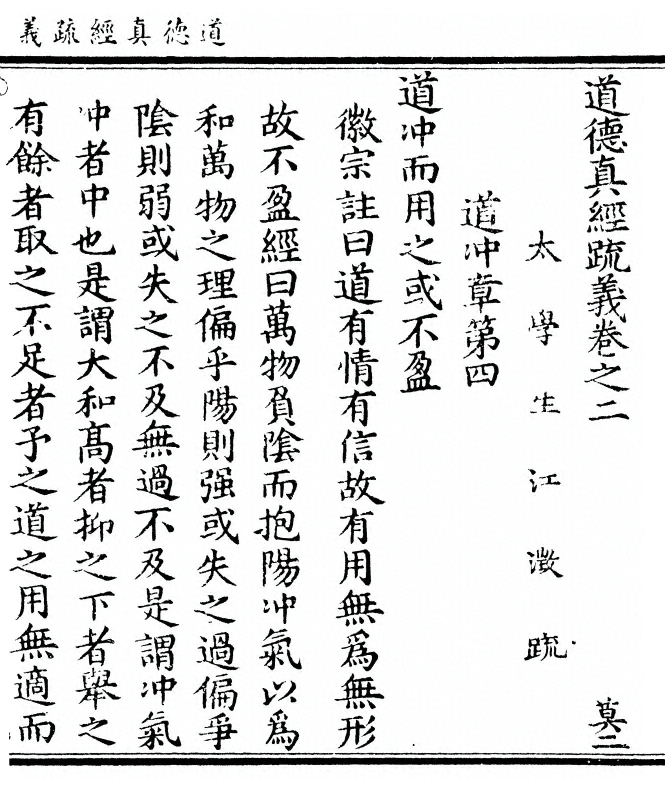 道德真經疏義
道德真經疏義卷之二 莫二
太學生江澂疏
道冲章第四
道冲而用之或不盈
徽宗註曰道有情有信故有用無為無形
故不盈經曰萬物負陰而抱陽冲氣以為
和萬物之理偏乎陽則强或失之過偏乎
陰則弱或失之不及無過不及是謂冲氣
冲者中也是謂大和高者抑之下者舉之
有餘者取之不足者予之道之用無適而